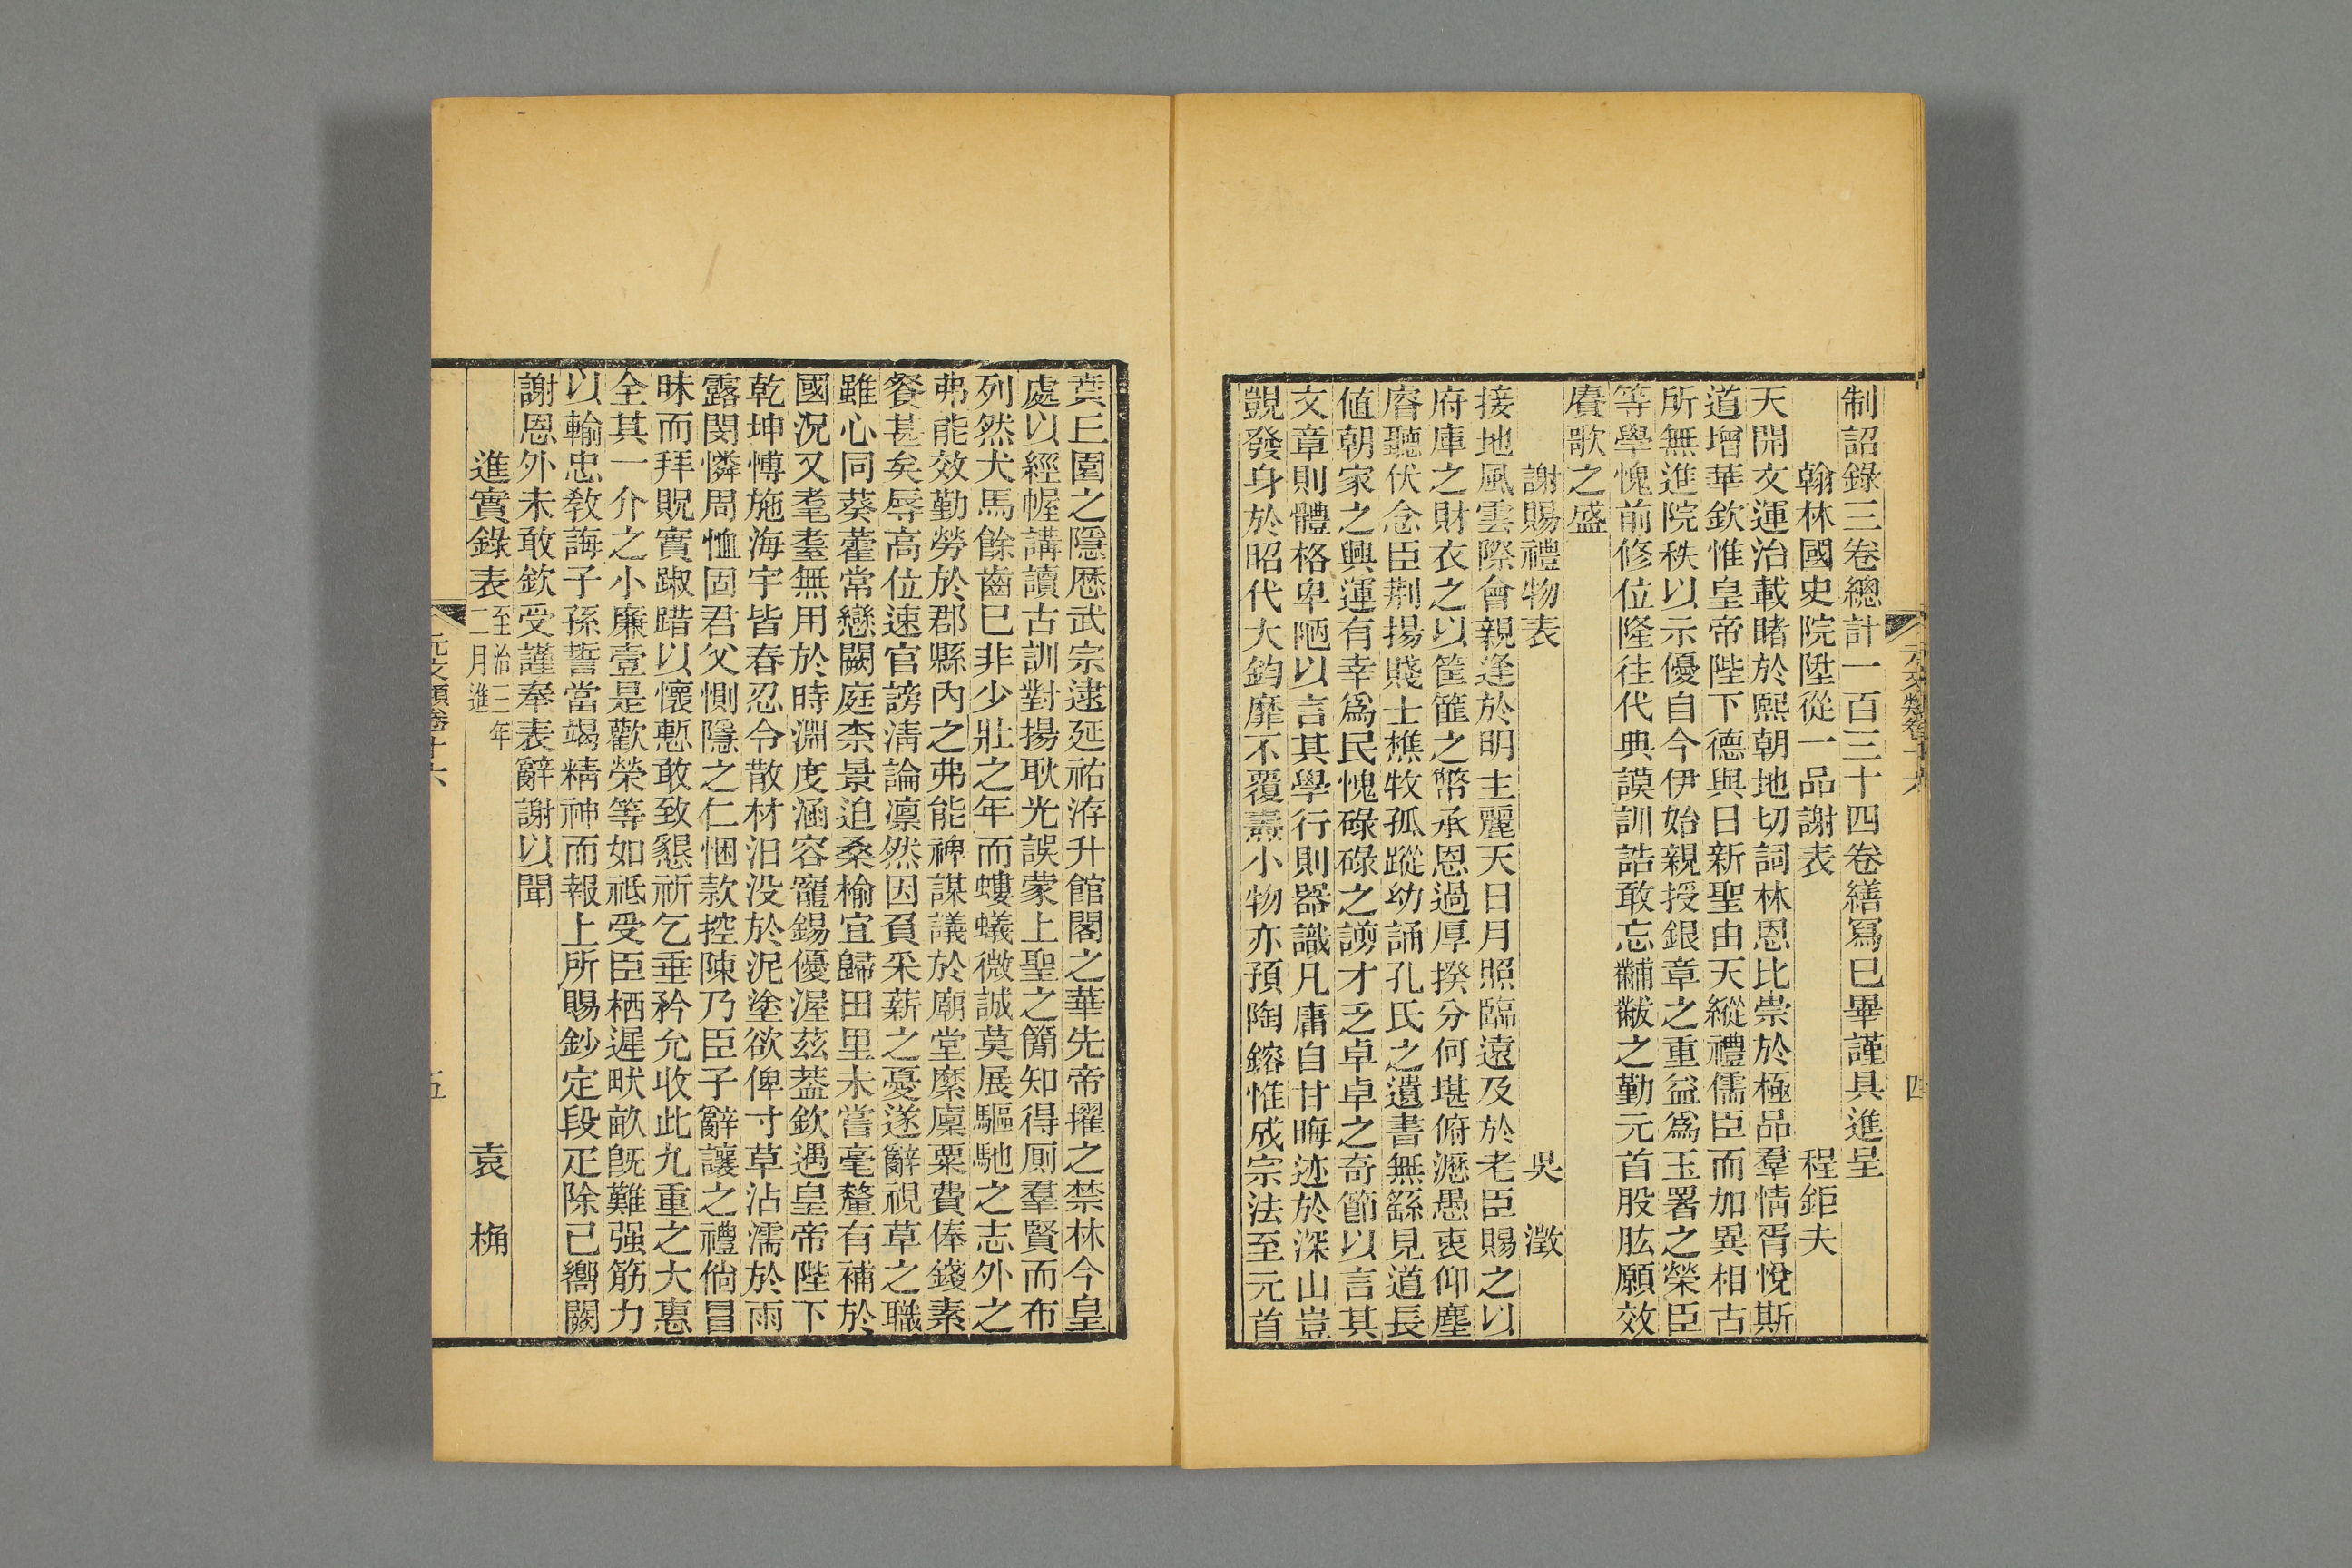 制詔錄三卷總計一百三十四卷繕寫已畢謹具進呈
翰林國史院陞從一品謝表 程鉅夫
天開文運治載睹於熙朝地切詞林恩比崇於極品羣情胥悅斯
道增華欽惟皇帝陛下德與日新聖由天縱禮儒臣而加異相古
所無進院秩以示優自今伊始親授銀章之重益爲玉署之榮臣
等學愧前修位隆往代典謨訓誥敢忘黼黻之勤元首股肱願效
賡歌之盛
謝賜禮物表 吳 澂
接地風雲際會親逢於明主麗天日月照臨遠及於老臣賜之以
府庫之財衣之以筐篚之幣承恩過厚揆分何堪俯瀝愚衷仰塵
膺聽伏念臣荆揚賤士樵牧孤蹤幼誦孔氏之遺書無繇見道長
値朝家之興運有幸爲民愧碌碌之謭才乏卓卓之奇節以言其
文章則體格卑陋以言其學行則器識凡庸自甘晦迹於深山豈
覬發身於昭代大鈞靡不覆燾小物亦預陶鎔惟成宗法至元首
元文類卷十六 四
賁丘園之隱歷武宗逮延祐洊升館閣之華先帝擢之禁林今皇
處以經幄講讀古訓對揚耿光誤蒙上聖之簡知得厠羣賢而布
列然犬馬餘齒已非少壯之年而螻蟻微誠莫展驅馳之志外之
弗能效勤勞於郡縣內之弗能裨謀議於廟堂縻廩粟費俸錢素
餐甚矣辱高位速官謗淸論凛然因負釆薪之憂遂辭視草之職
雖心同葵藿常戀闕庭柰景迫桑榆宜歸田里未嘗毫釐有補於
國況又耄耋無用於時淵度涵容寵錫優渥茲葢欽遇皇帝陛下
乾坤愽施海宇皆春忍令散材汩没於泥塗欲俾寸草沾濡於雨
露閔憐周恤固君父惻隱之仁悃款控陳乃臣子辭讓之禮倘冒
昧而拜貺實踧踖以懷慙敢致懇祈乞垂矜允收此九重之大惠
全其一介之小廉壹是歡榮等如祗受臣栖遲畎畝旣難强筋力
以輸忠敎誨子孫誓當竭精神而報上所賜鈔定段疋除已嚮闕
謝恩外未敢欽受謹奉表辭謝以聞
進實錄表 至治三年二月進 袁 桷
元文類卷十六 五